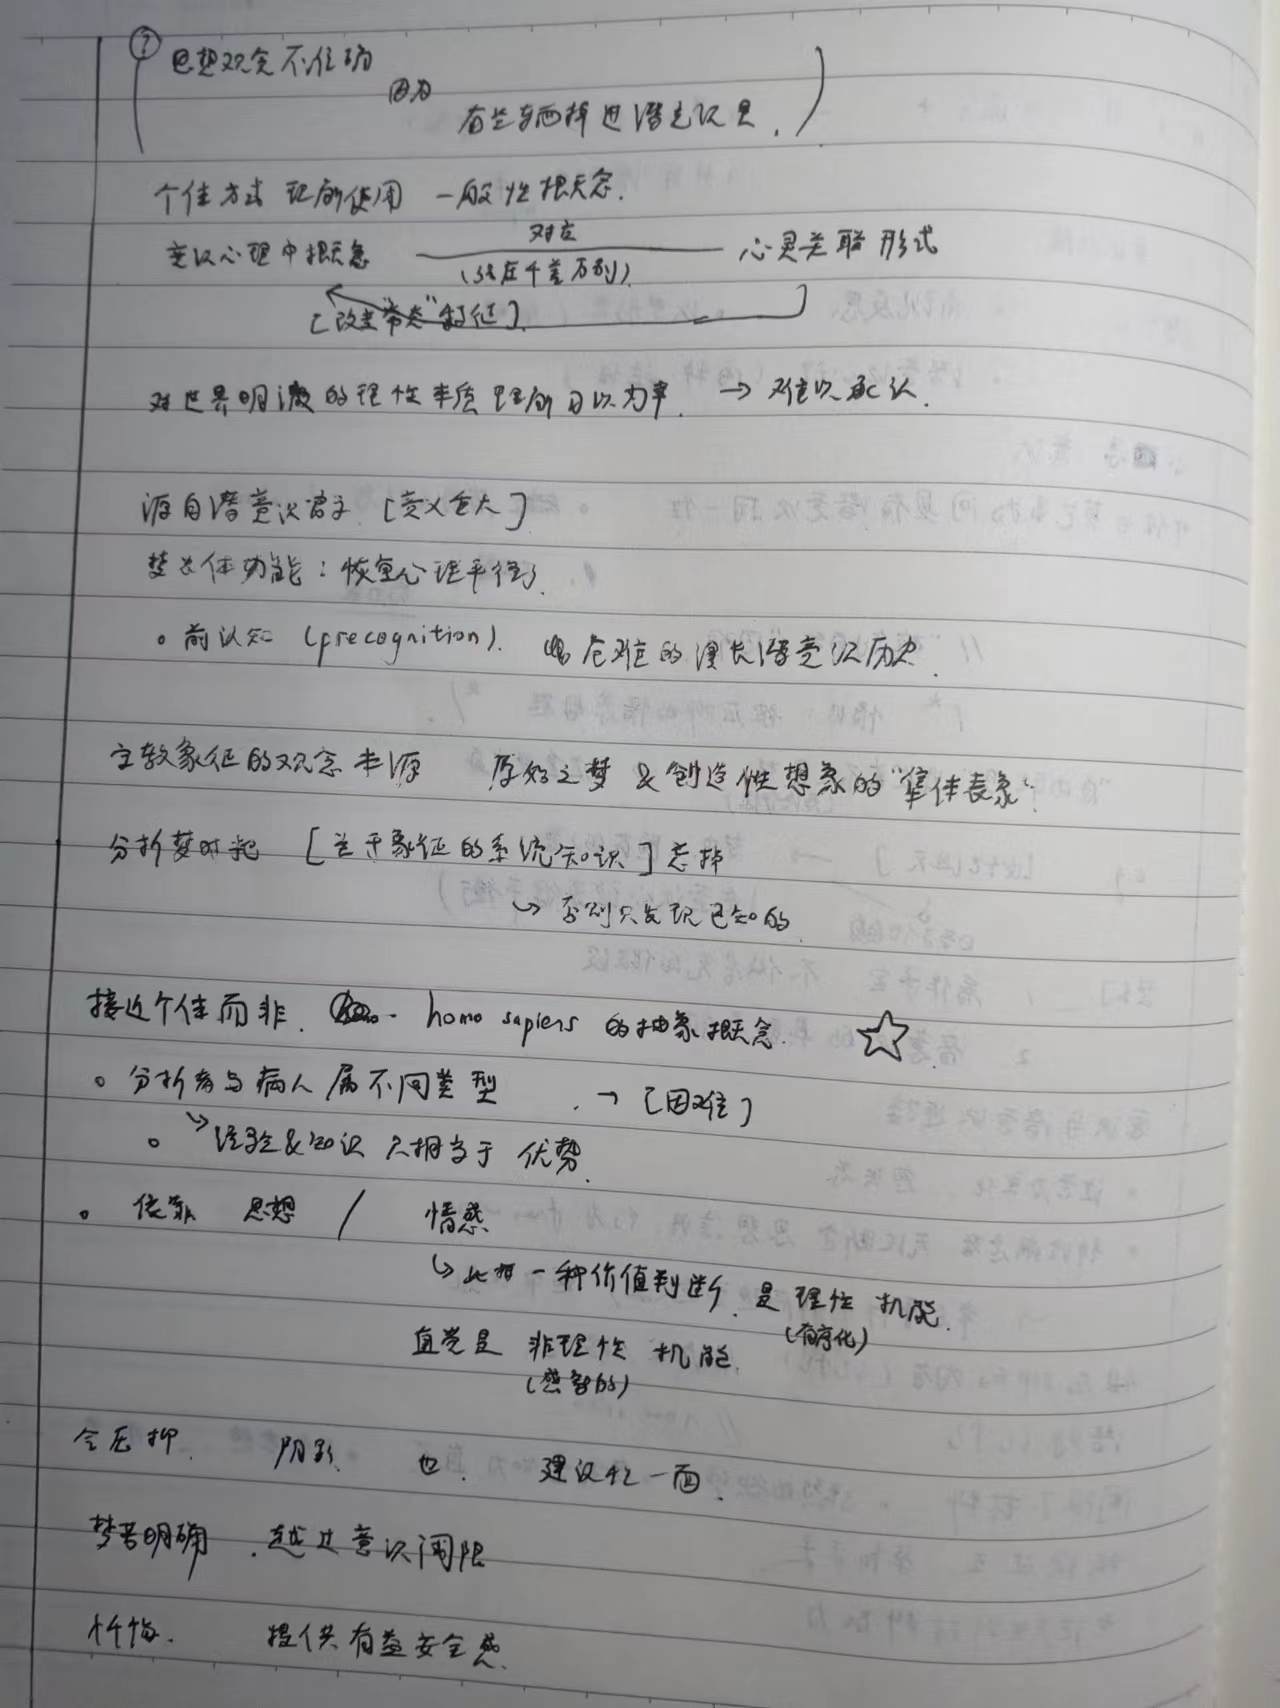 ? 思想观念不准确
因为
有些东西掉进潜意识里.
个体方式理所使用 一般性概念.
意识心理中概念 对应 心灵关联形式
(现在千差万别)
[改变"常态"特征]
对世界明澈的理性本质理所自以为率. → 难以承认.
源自潜意识 [意义重大]
梦总体功能:恢复心理平衡
。前认知 (precognition). 危难的漫长潜意识历史.
宗教象征的观念来源 原始之梦 & 创造性想象的"集体表象".
分析梦时把 [关于象征的系统知识] 忘掉
↳ 否则只发现已知的.
接近个体而非. homo sapiens 的抽象概念. ☆
。分析者与病人属不同类型 . → [困难]
。↳ 经验&知识 只相当于 优势.
。依靠 思想 / 情感
↳ 此有一种价值判断. 是理性机能.
(有序化)
直觉是 非理性 机能.
(感知的)
会压抑. 阴影. 也. 建设性一面.
梦若明确 . 越过意识阈限
忏悔. 提供有益安全感.